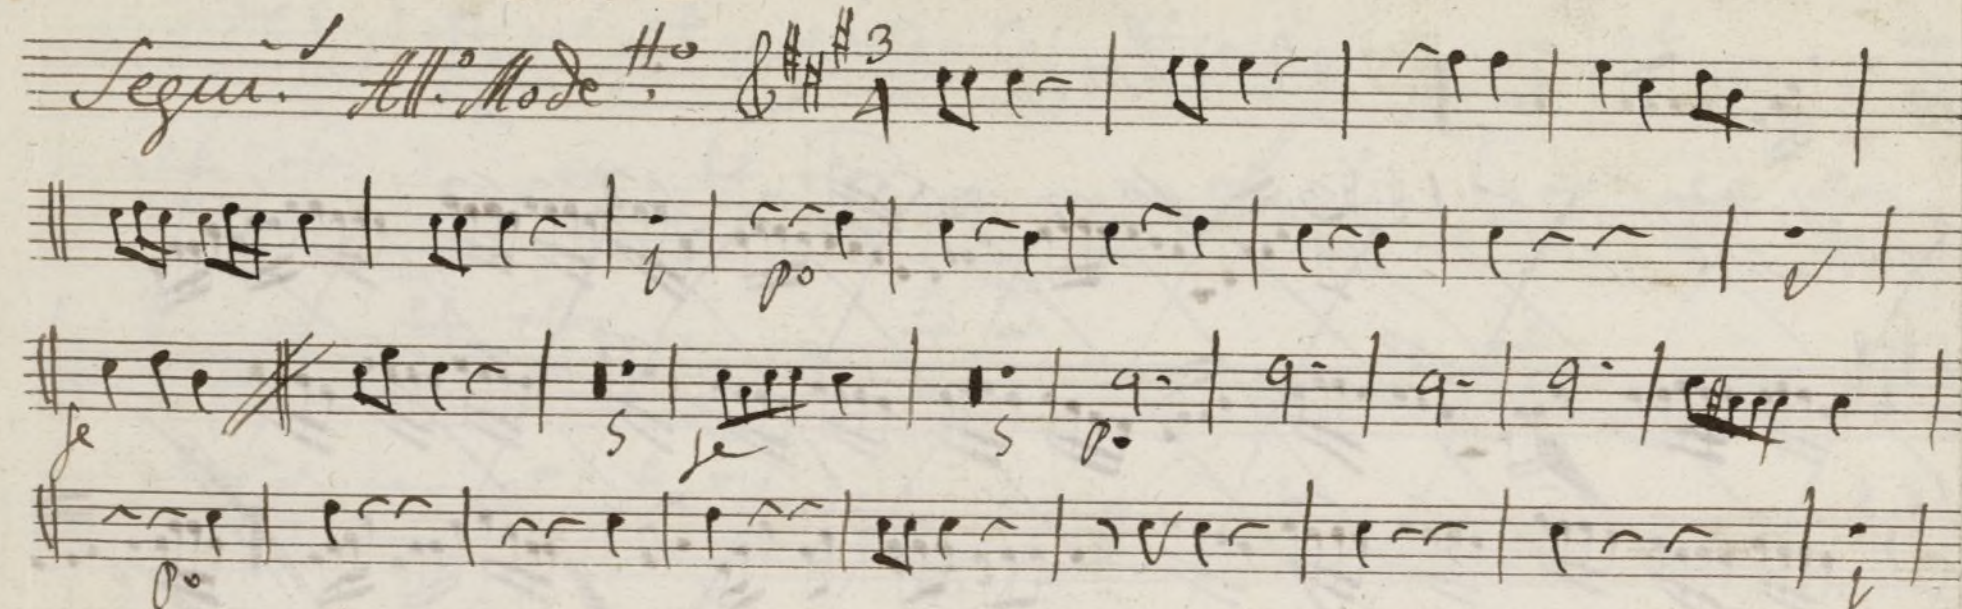 Segui.s All.o Mode.tto 3/4
po
fe 5 fe 5 po
po